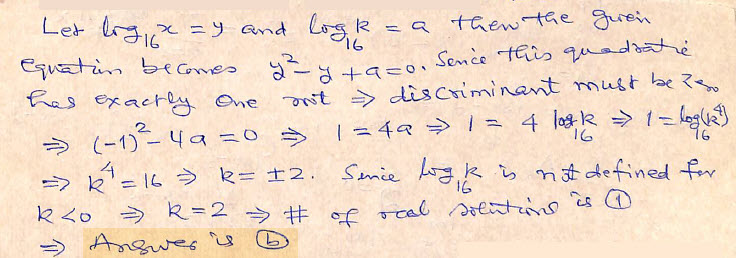 Let log₁₆x = y and log₁₆k = a then the given
equation becomes y² - y + a = 0. Sence this quadratic
has exactly one root ⇒ discriminant must be zero
⇒ (-1)² - 4a = 0 ⇒ 1 = 4a ⇒ 1 = 4 log₁₆k ⇒ 1 = log₁₆(k⁴)
⇒ k⁴ = 16 ⇒ k = ±2. Sence log₁₆k is not defined for
k<0 ⇒ k=2 ⇒ # of real solutions is ①
⇒ Answer is ⓑ